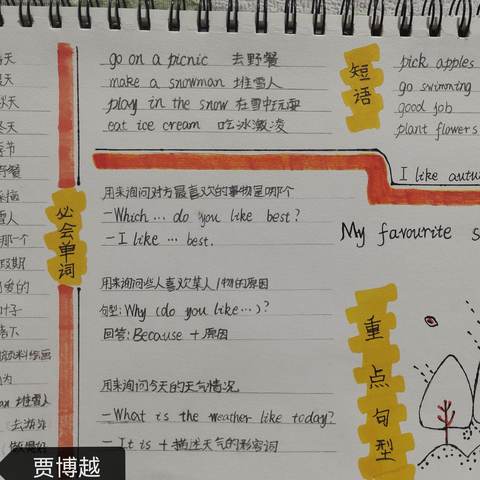 秋天
冬天
季节
野餐
雪人
哪一个
假期
色的
叶子
落下
颜料绘画
堆雪人
去游泳
必会单词
go on a picnic 去野餐
make a snowman 堆雪人
play in the snow 在雪中玩耍
eat ice cream 吃冰激凌
短语
pick apples
go swimming
good job
plant flowers
用来询问对方最喜欢的事物是哪个
—Which… do you like best?
—I like … best.
用来询问些人喜欢某人/物的原因
句型: Why (do you like…)?
回答: Because + 原因
用来询问今天的天气情况
—What is the weather like today?
—It is + 描述天气的形容词
I like autu
My favourite s
重点句型
贾博越